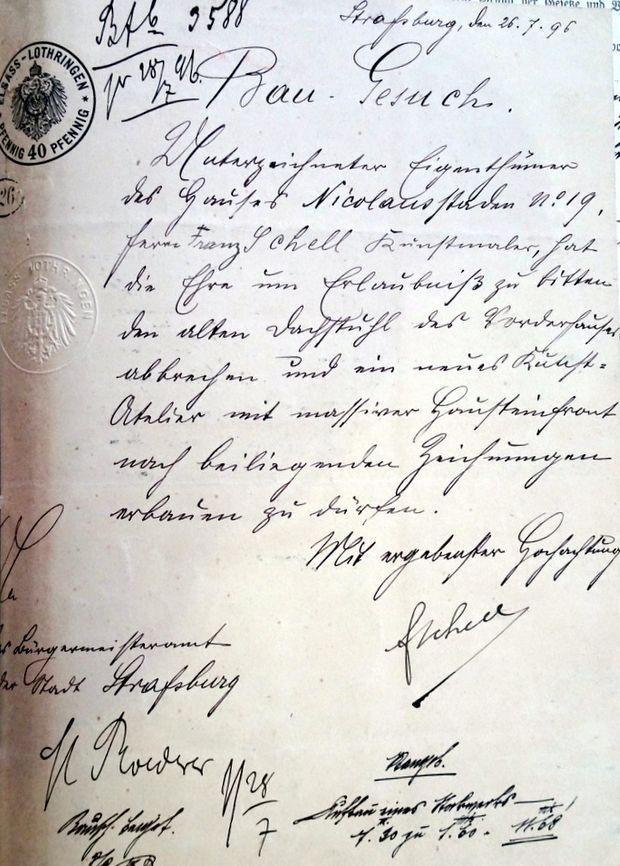 Bfb 3588
pr 28/7 96.
Straßburg, den 26.7.96
ELSASS-LOTHRINGEN
PFENNIG 40 PFENNIG
Bau-Gesuch.
Unterzeichneter Eigenthümer
des Hauses Nicolausstaden No 19,
Herrn Franz Schell Kunstmaler, hat
die Ehre um Erlaubniß zu bitten
den alten Dachstuhl des Vorderhauses
abbrechen und ein neues Kunst-
Atelier mit massiver Hausteinfront
nach beiliegenden Zeichnungen
erbauen zu dürfen.
Mit ergebenster Hochachtung
FSchell
Bürgermeisteramt
der Stadt Straßburg
Roederer
28/7
Aufbau eines Stockwerks
7.30 zu 1.60 = 11.68